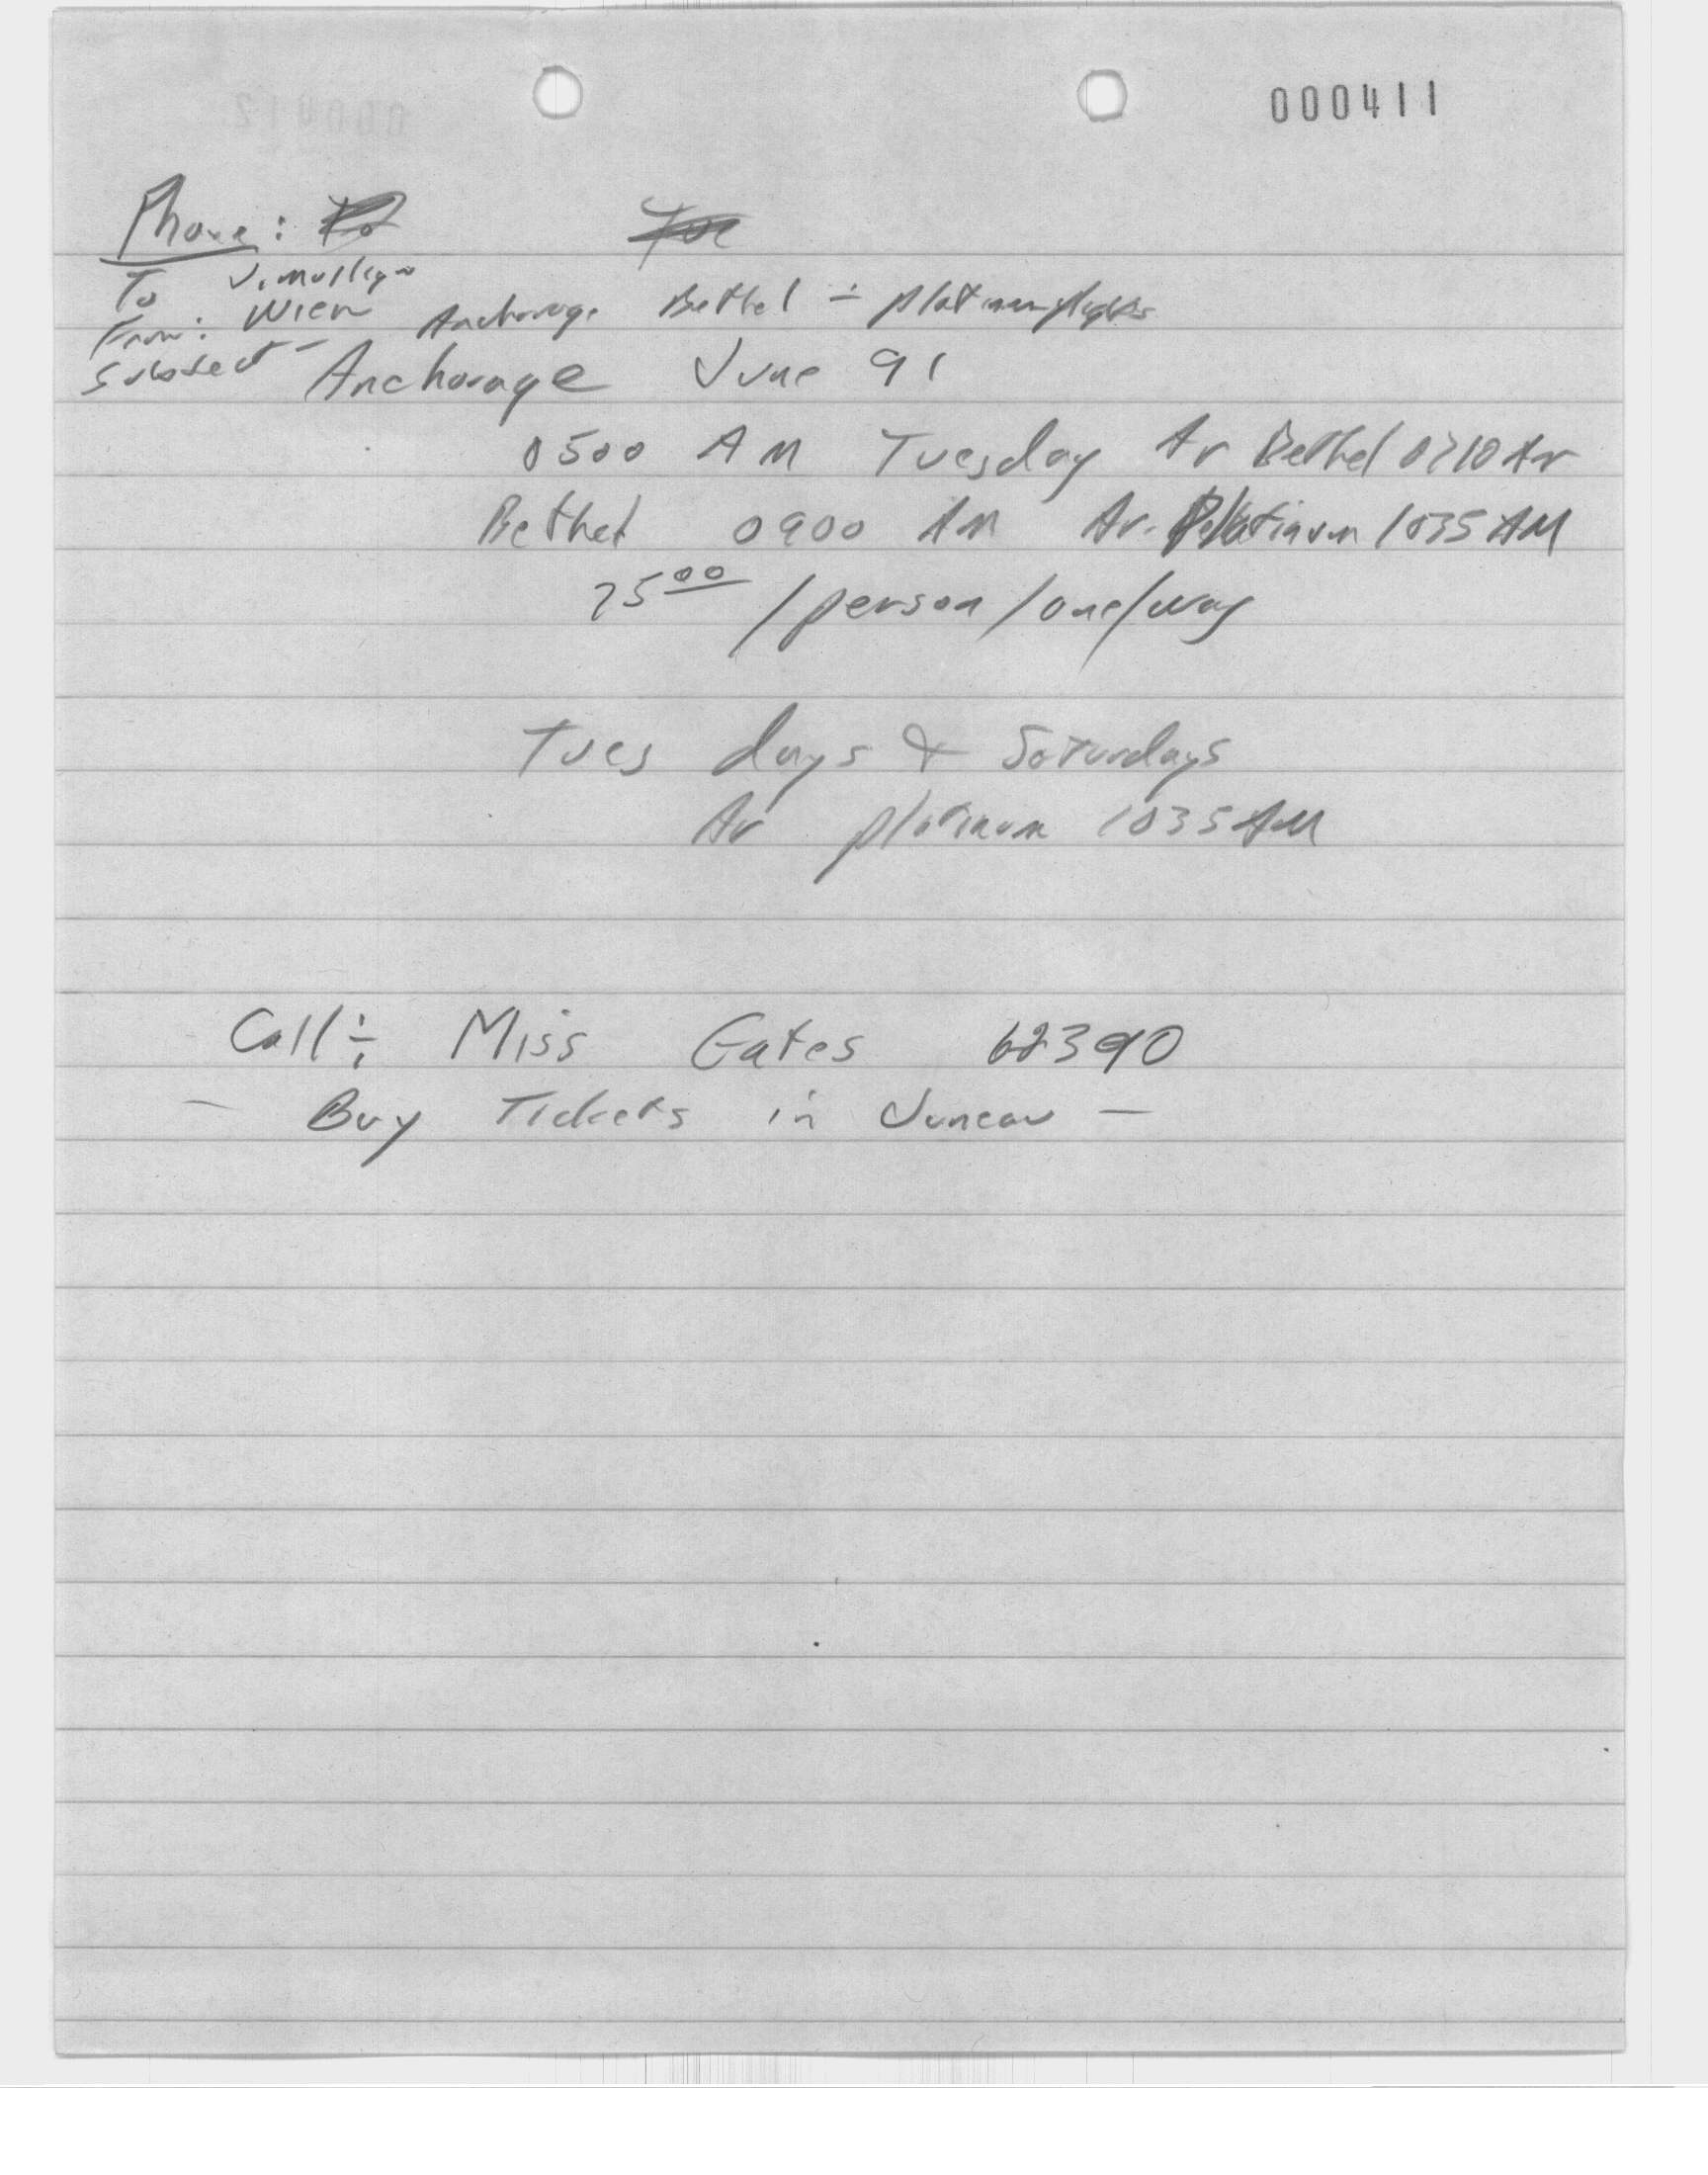 000411
Phone:
To J. Mulligan
From: Wien Anchorage Bethel ÷ platinum flights
Subject - Anchorage June 91
0500 AM Tuesday Ar Bethel 0710 Ar
Bethel 0900 AM Ar. Platinum 1035 AM
75 00 /person/one/way
Tues days & Saturdays
Ar platinum 1035 AM
Call: Miss Gates 62390
- Buy Tickets in Juneau -